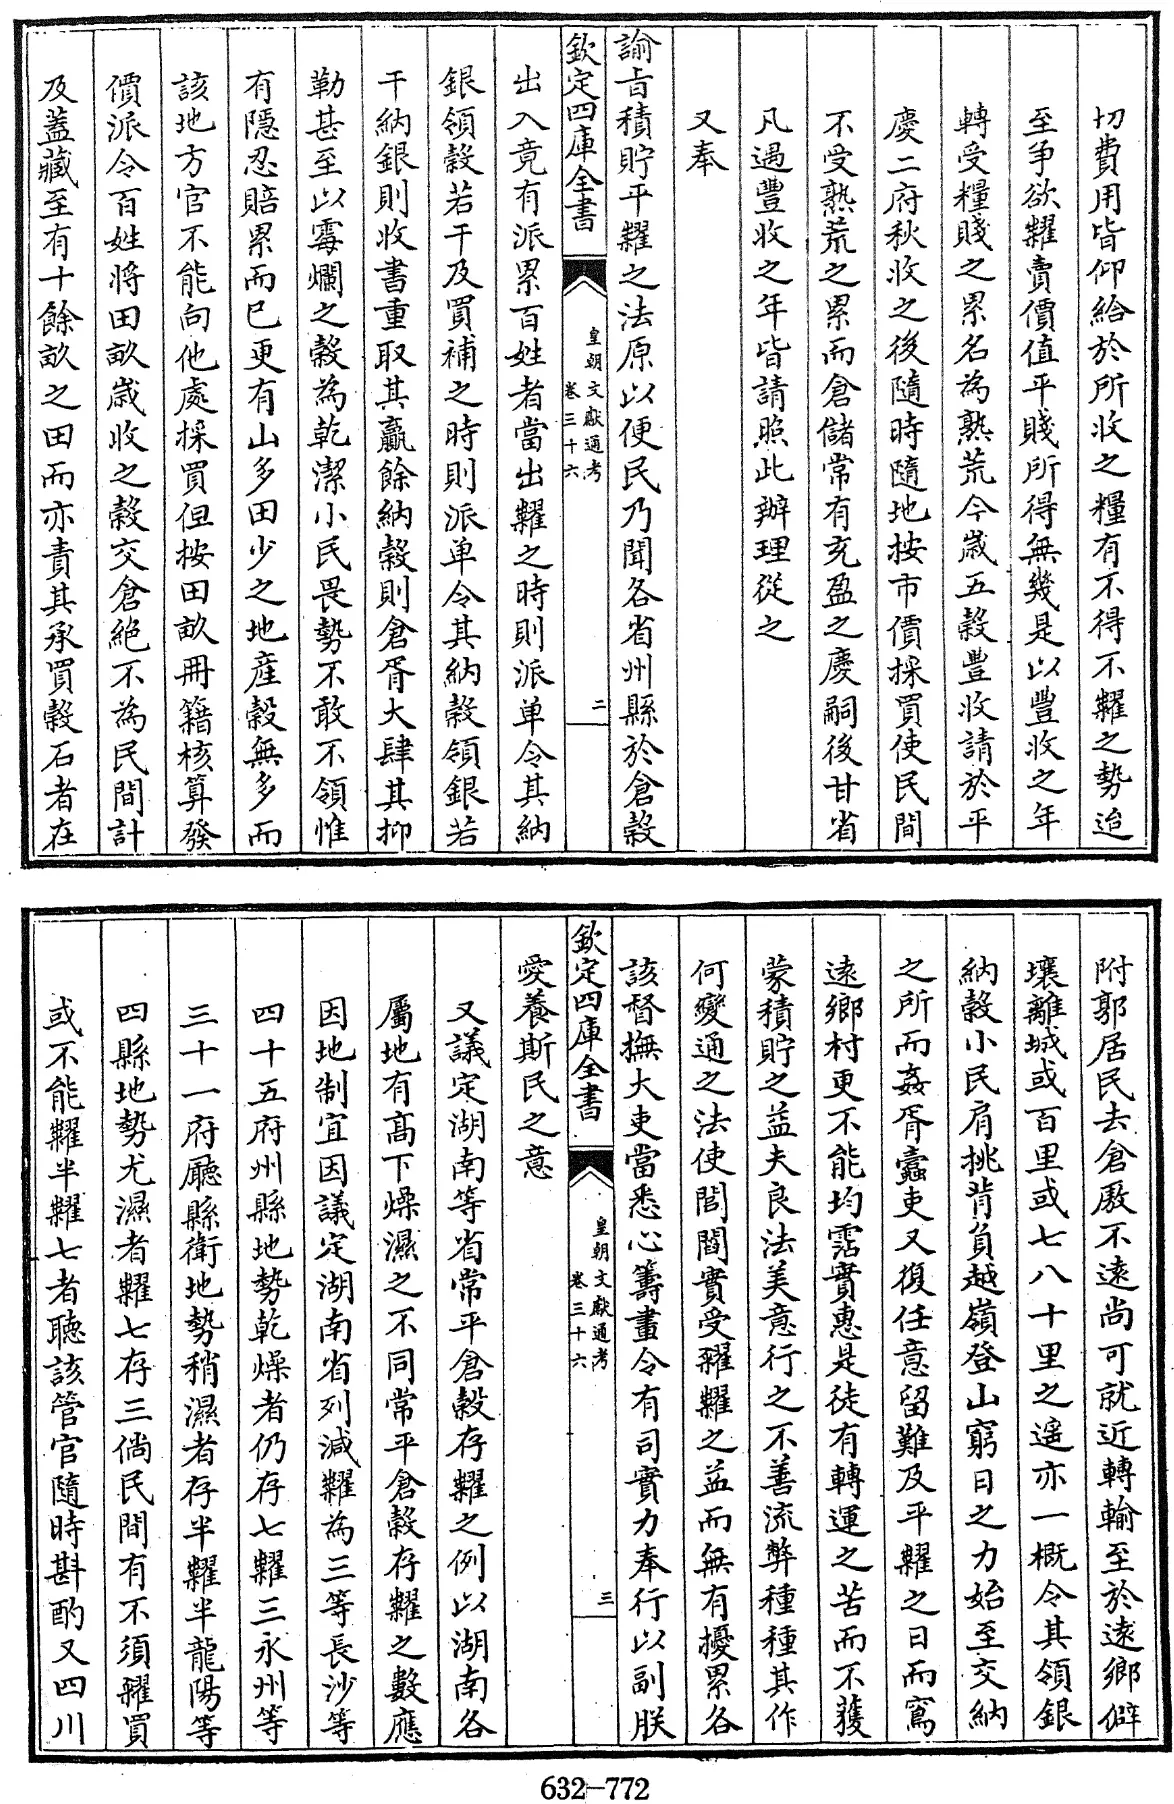 切費用皆仰給於所收之糧有不得不糶之勢迨
至爭欲糶賣價值平賤所得無幾是以豐收之年
轉受糧賤之累名為熟荒今歲五穀豐收請於平
慶二府秋收之後隨時隨地按市價採買使民間
不受熟荒之累而倉儲常有充盈之慶嗣後甘省
凡遇豐收之年皆請照此辦理從之
又奉
諭旨積貯平糶之法原以便民乃聞各省州縣於倉穀
欽定四庫全書
皇朝文獻通考
卷三十六
二
出入竟有派累百姓者當出糶之時則派单令其納
銀領穀若干及買補之時則派单令其納穀領銀若
干納銀則收書重取其贏餘納穀則倉胥大肆其抑
勒甚至以霉爛之穀為乾潔小民畏勢不敢不領惟
有隱忍賠累而已更有山多田少之地産穀無多而
該地方官不能向他處採買但按田畝冊籍核算發
價派令百姓將田畝歲收之穀交倉絶不為民間計
及蓋藏至有十餘畝之田而亦責其承買穀石者在
附郭居民去倉厫不遠尚可就近轉輸至於遠鄉僻
壤離城或百里或七八十里之遥亦一概令其領銀
納穀小民肩挑背負越嶺登山窮日之力始至交納
之所而姦胥蠹吏又復任意留難及平糶之日而窵
遠鄉村更不能均霑實惠是徒有轉運之苦而不獲
蒙積貯之益夫良法美意行之不善流弊種種其作
何變通之法使閭閻實受糴糶之益而無有擾累各
該督撫大吏當悉心籌畫令有司實力奉行以副朕
欽定四庫全書
皇朝文獻通考
卷三十六
三
愛養斯民之意
又議定湖南等省常平倉穀存糶之例以湖南各
屬地有高下燥濕之不同常平倉穀存糶之數應
因地制宜因議定湖南省列減糶為三等長沙等
四十五府州縣地勢乾燥者仍存七糶三永州等
三十一府廳縣衛地勢稍濕者存半糶半龍陽等
四縣地勢尤濕者糶七存三倘民間有不須糴買
或不能糶半糶七者聽該管官隨時斟酌又四川
632-772